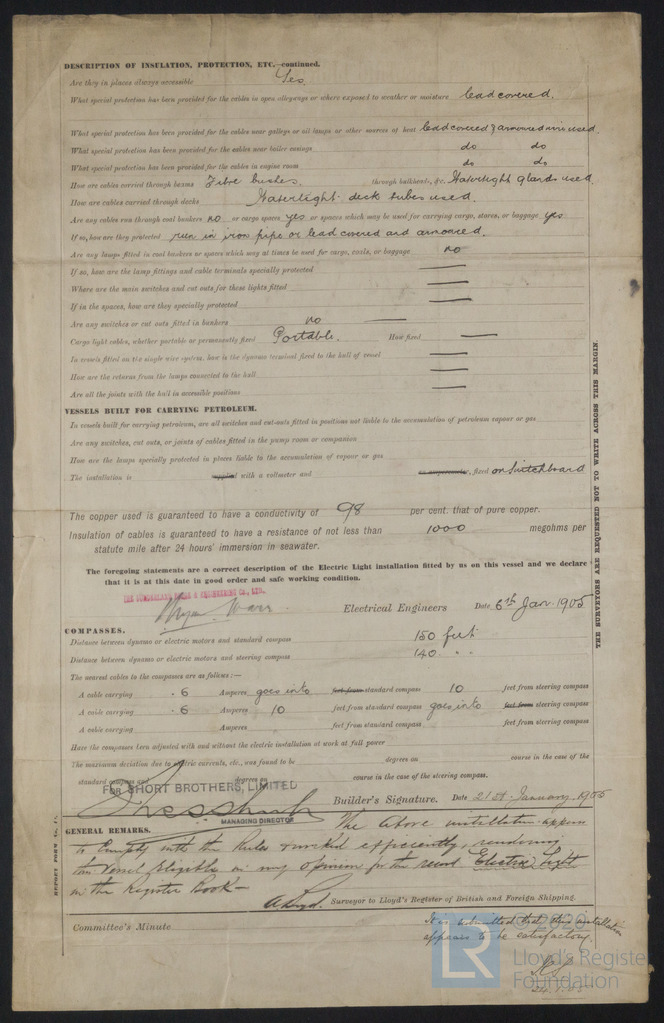 DESCRIPTION OF INSULATION, PROTECTION, ETC.—continued.
Are they in places always accessible Yes.
What special protection has been provided for the cables in open alleyways or where exposed to weather or moisture lead covered.
What special protection has been provided for the cables near galleys or oil lamps or other sources of heat lead covered & armoured wire used.
What special protection has been provided for the cables near boiler casings do do
What special protection has been provided for the cables in engine room do do
How are cables carried through beams Fibre bushes. through bulkheads, &c. Watertight glands used.
How are cables carried through decks Watertight deck tubes used.
Are any cables run through coal bunkers no or cargo spaces yes or spaces which may be used for carrying cargo, stores, or baggage yes
If so, how are they protected run in iron pipe or lead covered and armoured.
Are any lamps fitted in coal bunkers or spaces which may at times be used for cargo, coals, or baggage no
If so, how are the lamp fittings and cable terminals specially protected —
Where are the main switches and cut outs for these lights fitted —
If in the spaces, how are they specially protected —
Are any switches or cut outs fitted in bunkers no —
Cargo light cables, whether portable or permanently fixed Portable. How fixed —
In vessels fitted on the single wire system, how is the dynamo terminal fixed to the hull of vessel —
How are the returns from the lamps connected to the hull —
Are all the joints with the hull in accessible positions —
VESSELS BUILT FOR CARRYING PETROLEUM.
In vessels built for carrying petroleum, are all switches and cut-outs fitted in positions not liable to the accumulation of petroleum vapour or gas
Are any switches, cut outs, or joints of cables fitted in the pump room or companion
How are the lamps specially protected in places liable to the accumulation of vapour or gas
The installation is supplied with a voltmeter and an amperemeter, fixed on Switchboard
The copper used is guaranteed to have a conductivity of 98 per cent. that of pure copper.
Insulation of cables is guaranteed to have a resistance of not less than 1000 megohms per
statute mile after 24 hours' immersion in seawater.
The foregoing statements are a correct description of the Electric Light installation fitted by us on this vessel and we declare
that it is at this date in good order and safe working condition.
& ENGINEERING CO., LTD.
Electrical Engineers Date 6th Jan. 1905
COMPASSES.
Distance between dynamo or electric motors and standard compass 150 feet
Distance between dynamo or electric motors and steering compass 140 " "
The nearest cables to the compasses are as follows:—
A cable carrying .6 Amperes goes into feet from standard compass 10 feet from steering compass
A cable carrying .6 Amperes 10 feet from standard compass goes into feet from steering compass
A cable carrying Amperes feet from standard compass feet from steering compass
Have the compasses been adjusted with and without the electric installation at work at full power
The maximum deviation due to electric currents, etc., was found to be degrees on course in the case of the
standard compass and degrees on course in the case of the steering compass.
FOR SHORT BROTHERS, LIMITED
MANAGING DIRECTOR
Builder's Signature. Date 21st January 1905
GENERAL REMARKS. The above installation appears
to Comply with the Rules & worked efficiently, rendering
the Vessel Eligible in my opinion for the record Electric Light
in the Register Book—
Surveyor to Lloyd's Register of British and Foreign Shipping.
Committee's Minute
It is submitted that this installation
appears to be satisfactory.
THE SURVEYORS ARE REQUESTED NOT TO WRITE ACROSS THIS MARGIN.
LR
© 2020
Lloyd's Register
Foundation